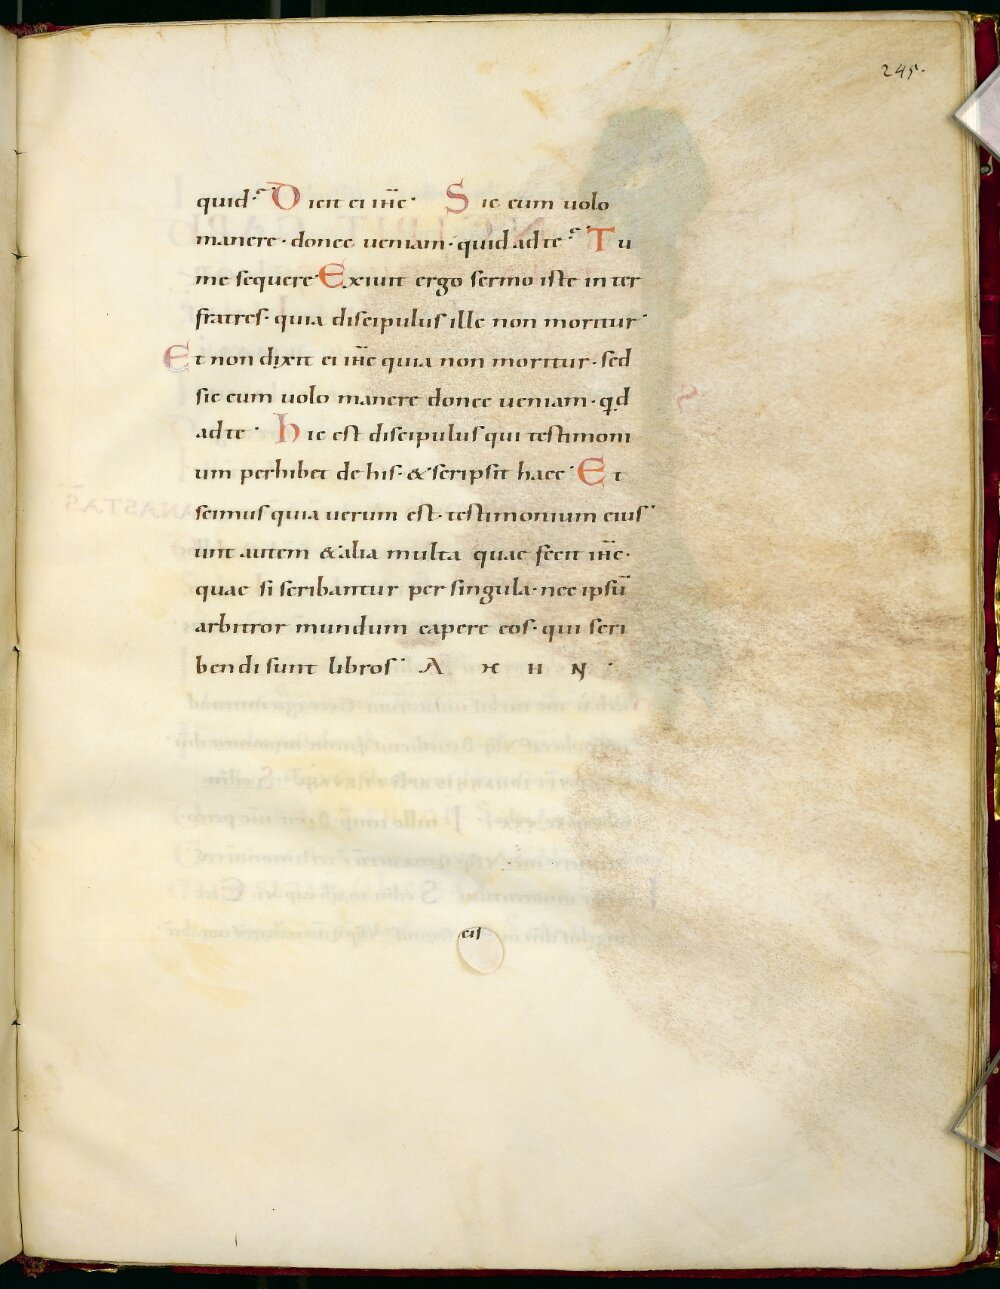 245.
quid· Dicit ei ihc· Sic eum uolo
manere· donec ueniam· quid ad te· Tu
me sequere· Exiuit ergo sermo iste inter
fratres· quia discipulus ille non moritur·
Et non dixit ei ihc quia non moritur· sed
sic eum uolo manere donec ueniam· qd
ad te· hic est discipulus qui testimoni
um perhibet de his· & scripsit haec· Et
scimus quia uerum est· testimonium eius·
unt autem & alia multa quae fecit ihc·
quae si scribantur per singula· nec ipsū
arbitror mundum capere eos· qui scri
bendi sunt libros· A M H N·
eis